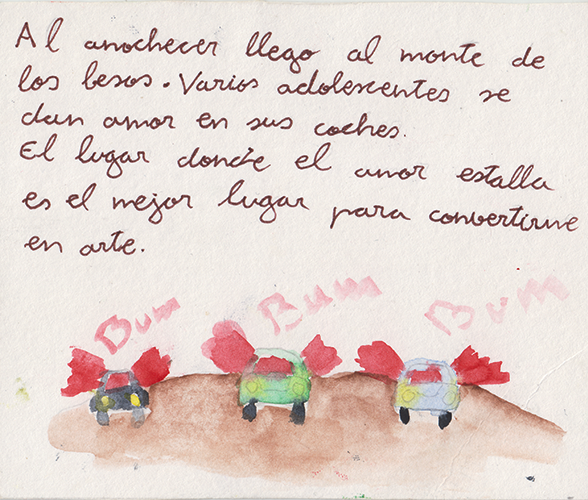 Al anochecer llego al monte de
los besos. Varios adolescentes se
dan amor en sus coches.
El lugar donde el amor estalla
es el mejor lugar para convertirme
en arte.
Bum Bum Bum